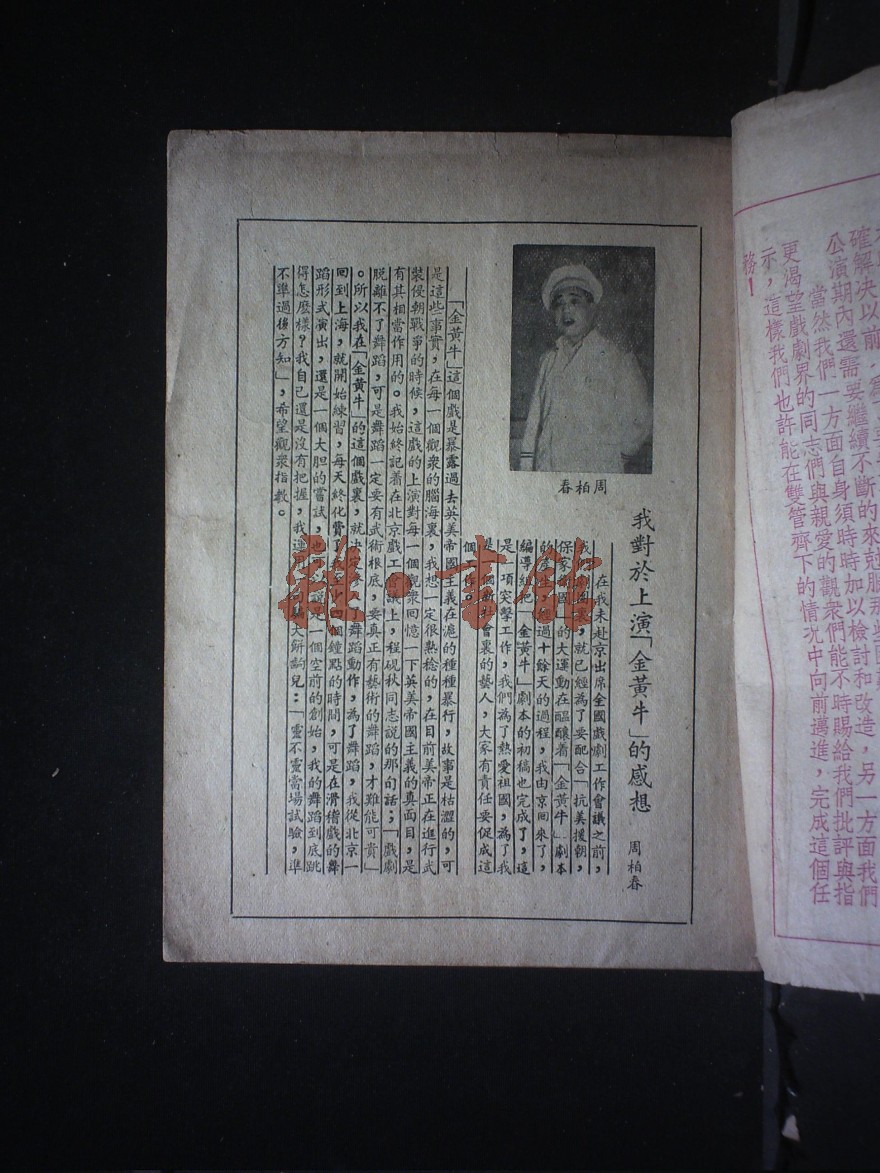 確解決以前，
公演期內還需要繼續不斷的來剋服
當然我們一方面自身須時時加以檢討和改造，另一方面我們
更渴望戲劇界的同志們與親愛的觀衆們能不時賜給我們批評與指
示，這樣我們也許能在雙管齊下的情況中向前邁進，完成這個任
務！
周柏春
我對於上演「金黃牛」的感想
周柏春
在我未赴京出席全國戲劇工作會議之前，
我劇團裏，就已經為了要配合「抗美援朝，
保家衛國」的大運動在醞釀着「金黃牛」劇本
的產生，經過十餘天的過程，我由京回來了，
編導組把「金黃牛」劇本的初稿也完成了，這
是一項突擊工作，我們為了熱愛祖國，為了我
是個新社會裏的藝人，大家有責任要促成這
個工作。
「金黃牛」這個戲是暴露過去英美帝國主義在滬的種種暴行，故事是枯澀的，可
是這些事實，在每一個觀衆的腦海裏，我想一定很熟稔的，在目前美帝正在進行武
裝侵朝戰爭的時候，這戲的上演對每一個觀衆回憶一下英美帝國主義的真面目，是
有其相當作用的。我始終記着在北京戲工會議上，程硯秋同志說的那句話；「戲劇
脫離不了舞蹈，可是舞蹈一定要有武術根底，要真正有藝術的舞蹈，才難能可貴」
。所以我在「金黃牛」的這個戲裏，就決定參加舞蹈動作，為了舞蹈，我從北京一
回到上海，就開始練習，每天終化費了四個鐘點的時間，可是在滑稽戲的舞
蹈形式演出，還是一個大胆的嘗試，也可以說是一個空前的創始，我的舞蹈到底跳
得怎麼樣？我自己還是沒有把握，我運用一句大餅齣兒：「靈不靈當場試驗，準
不準過後方知」，希望觀衆指教。
雜·書館